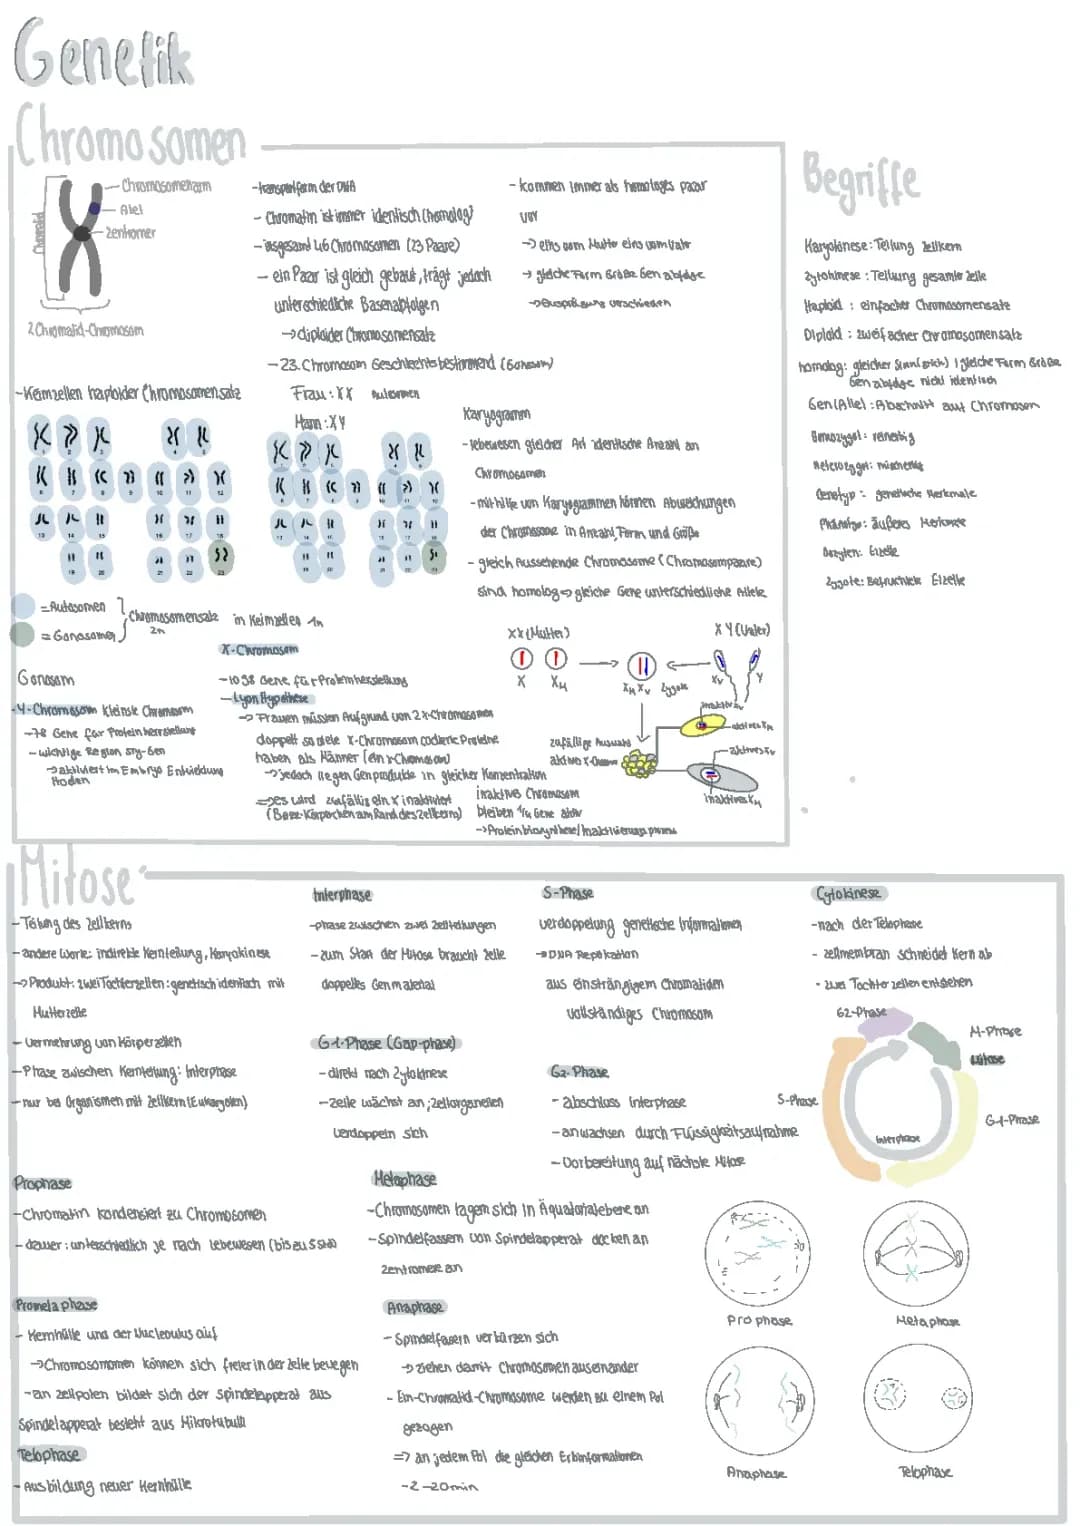 Genetik
Chromosomen
Chromosomenarm
Alel
Zentromer
Chromatid
2 Chromatid-Chromosom
-Transportform der DNA
- Chromatin ist immer identisch (homolog)
- insgesamt 46 Chromosomen (23 Paare)
- ein Paar ist gleich gebaut, trägt jedoch
unterschiedliche Basenabfolgen
→ diploider Chromosomensatz
-23. Chromosom Geschlechtsbestimmend (Gonosom)
Frau: XX Autosomen
Mann: XY
- kommen immer als homologes paar
vor
→ eins vom Mutter eins vom Vatr
→ gleiche Form Größe Gen abfolge
→ Ausprägung verschieden
-Keimzellen haploider Chromosomensatz
Karyogramm
- Lebewesen gleicher Art identische Anzahl an
Chromosomen
- mithilfe von Karyogrammen können Abweichungen
der Chromosome in Anzahl, Form und Größe
- gleich Aussehende Chromosome (Chromosompaare)
sind homolog → gleiche Gene unterschiedliche Allele
= Autosomen
= Gonosomen
Chromosomensatz
2n
in Keimzellen 1n
Gonosom
-Y-Chromosom kleinste Chromosom
-78 Gene für Protein herstellung
- wichtige Region sry-Gen
→ aktiviert im Embryo Entwicklung
Hoden
X-Chromosom
-1098 Gene für Proteinherstellung
- Lyon Hypothese
→ Frauen müssten Aufgrund von 2 X-Chromosomen
doppelt so viele X-Chromosom codierte Proteine
haben als Männer (ein X-Chromosom)
→ jedoch liegen Genprodukte in gleicher Konzentration
⇒ es wird zufällig ein X inaktiviert
(Barr-Körperchen am Rand des Zellkerns)
inaktives Chromosom
bleiben 1/4 Gene aktiv
→ Proteinbiosynthese/Inaktivierungsprozess
XX (Mutter)
XY (Vater)
X
XM
XM XV
Zygote
XV
Y
zufällige Auswahl
aktives X-Chromosom
inaktives XV
aktives XM
aktives XV
inaktives XM
Begriffe
Karyokinese: Teilung Zellkern
Zytokinese: Teilung gesamte Zelle
Haploid : einfacher Chromosomensatz
Diploid : zweifacher Chromosomensatz
homolog: gleicher Sinn (grich) | gleiche Form Größe
Gen abfolge nicht identisch
Gen (Allel) : Abschnitt auf Chromosom
Homozygot: reinerbig
Heterozygot: mischerbig
Genotyp : genetische Merkmale
Phänotyp: äußeres Merkmale
Oozyten: Eizelle
Zygote: Befruchtete Eizelle
Mitose
- Teilung des Zellkerns
- andere Worte: indirekte Kernteilung, Karyokinese
→ Produkt: zwei Tochterzellen: genetisch identisch mit
Mutterzelle
- Vermehrung von Körperzellen
- Phase zwischen Kernteilung: Interphase
- nur bei Organismen mit Zellkern (Eukaryoten)
Interphase
-phase zwischen zwei Zellteilungen
- zum Start der Mitose braucht Zelle
doppeltes Genmaterial
G-1-Phase (Gap-phase)
- direkt nach Zytokinese
- Zelle wächst an, Zellorganellen
verdoppeln sich
S-Phase
Verdoppelung genetische Informationen
→ DNA Replikation
aus einsträngigem Chromatiden
vollständiges Chromosom
G2-Phase
- abschluss Interphase
- anwachsen durch Flüssigkeitsaufnahme
- Vorbereitung auf nächste Mitose
Cytokinese
-nach der Telophase
- Zellmembran schneidet Kern ab
- zwei Tochter zellen entstehen
G2-Phase
M-Phase
Mitose
S-Phase
G-1-Phase
Interphase
Prophase
-Chromatin kondensiert zu Chromosomen
- dauer: unterschiedlich je nach Lebewesen (bis zu 5 Std)
Prometaphase
- Kernhülle und der Nucleoulus auf
→Chromosomomen können sich freier in der Zelle bewegen
-an Zellpolen bildet sich der Spindelapperat aus
Spindelapperat besteht aus Mikrotubuli
Telophase
- Ausbildung neuer Kernhülle
Metaphase
-Chromosomen lagern sich in Äquatorialebene an
-Spindelfassern von Spindelapperat docken an
Zentromere an
Anaphase
- Spindelfasern verkürzen sich
→ ziehen damit Chromosomen auseinander
- Ein-Chromatid-Chromosome werden zu einem Pol
gezogen
=> an jedem Pol die gleichen Erbinformationen
-2-20min
Prophase
Metaphase
Anaphase
Telophase